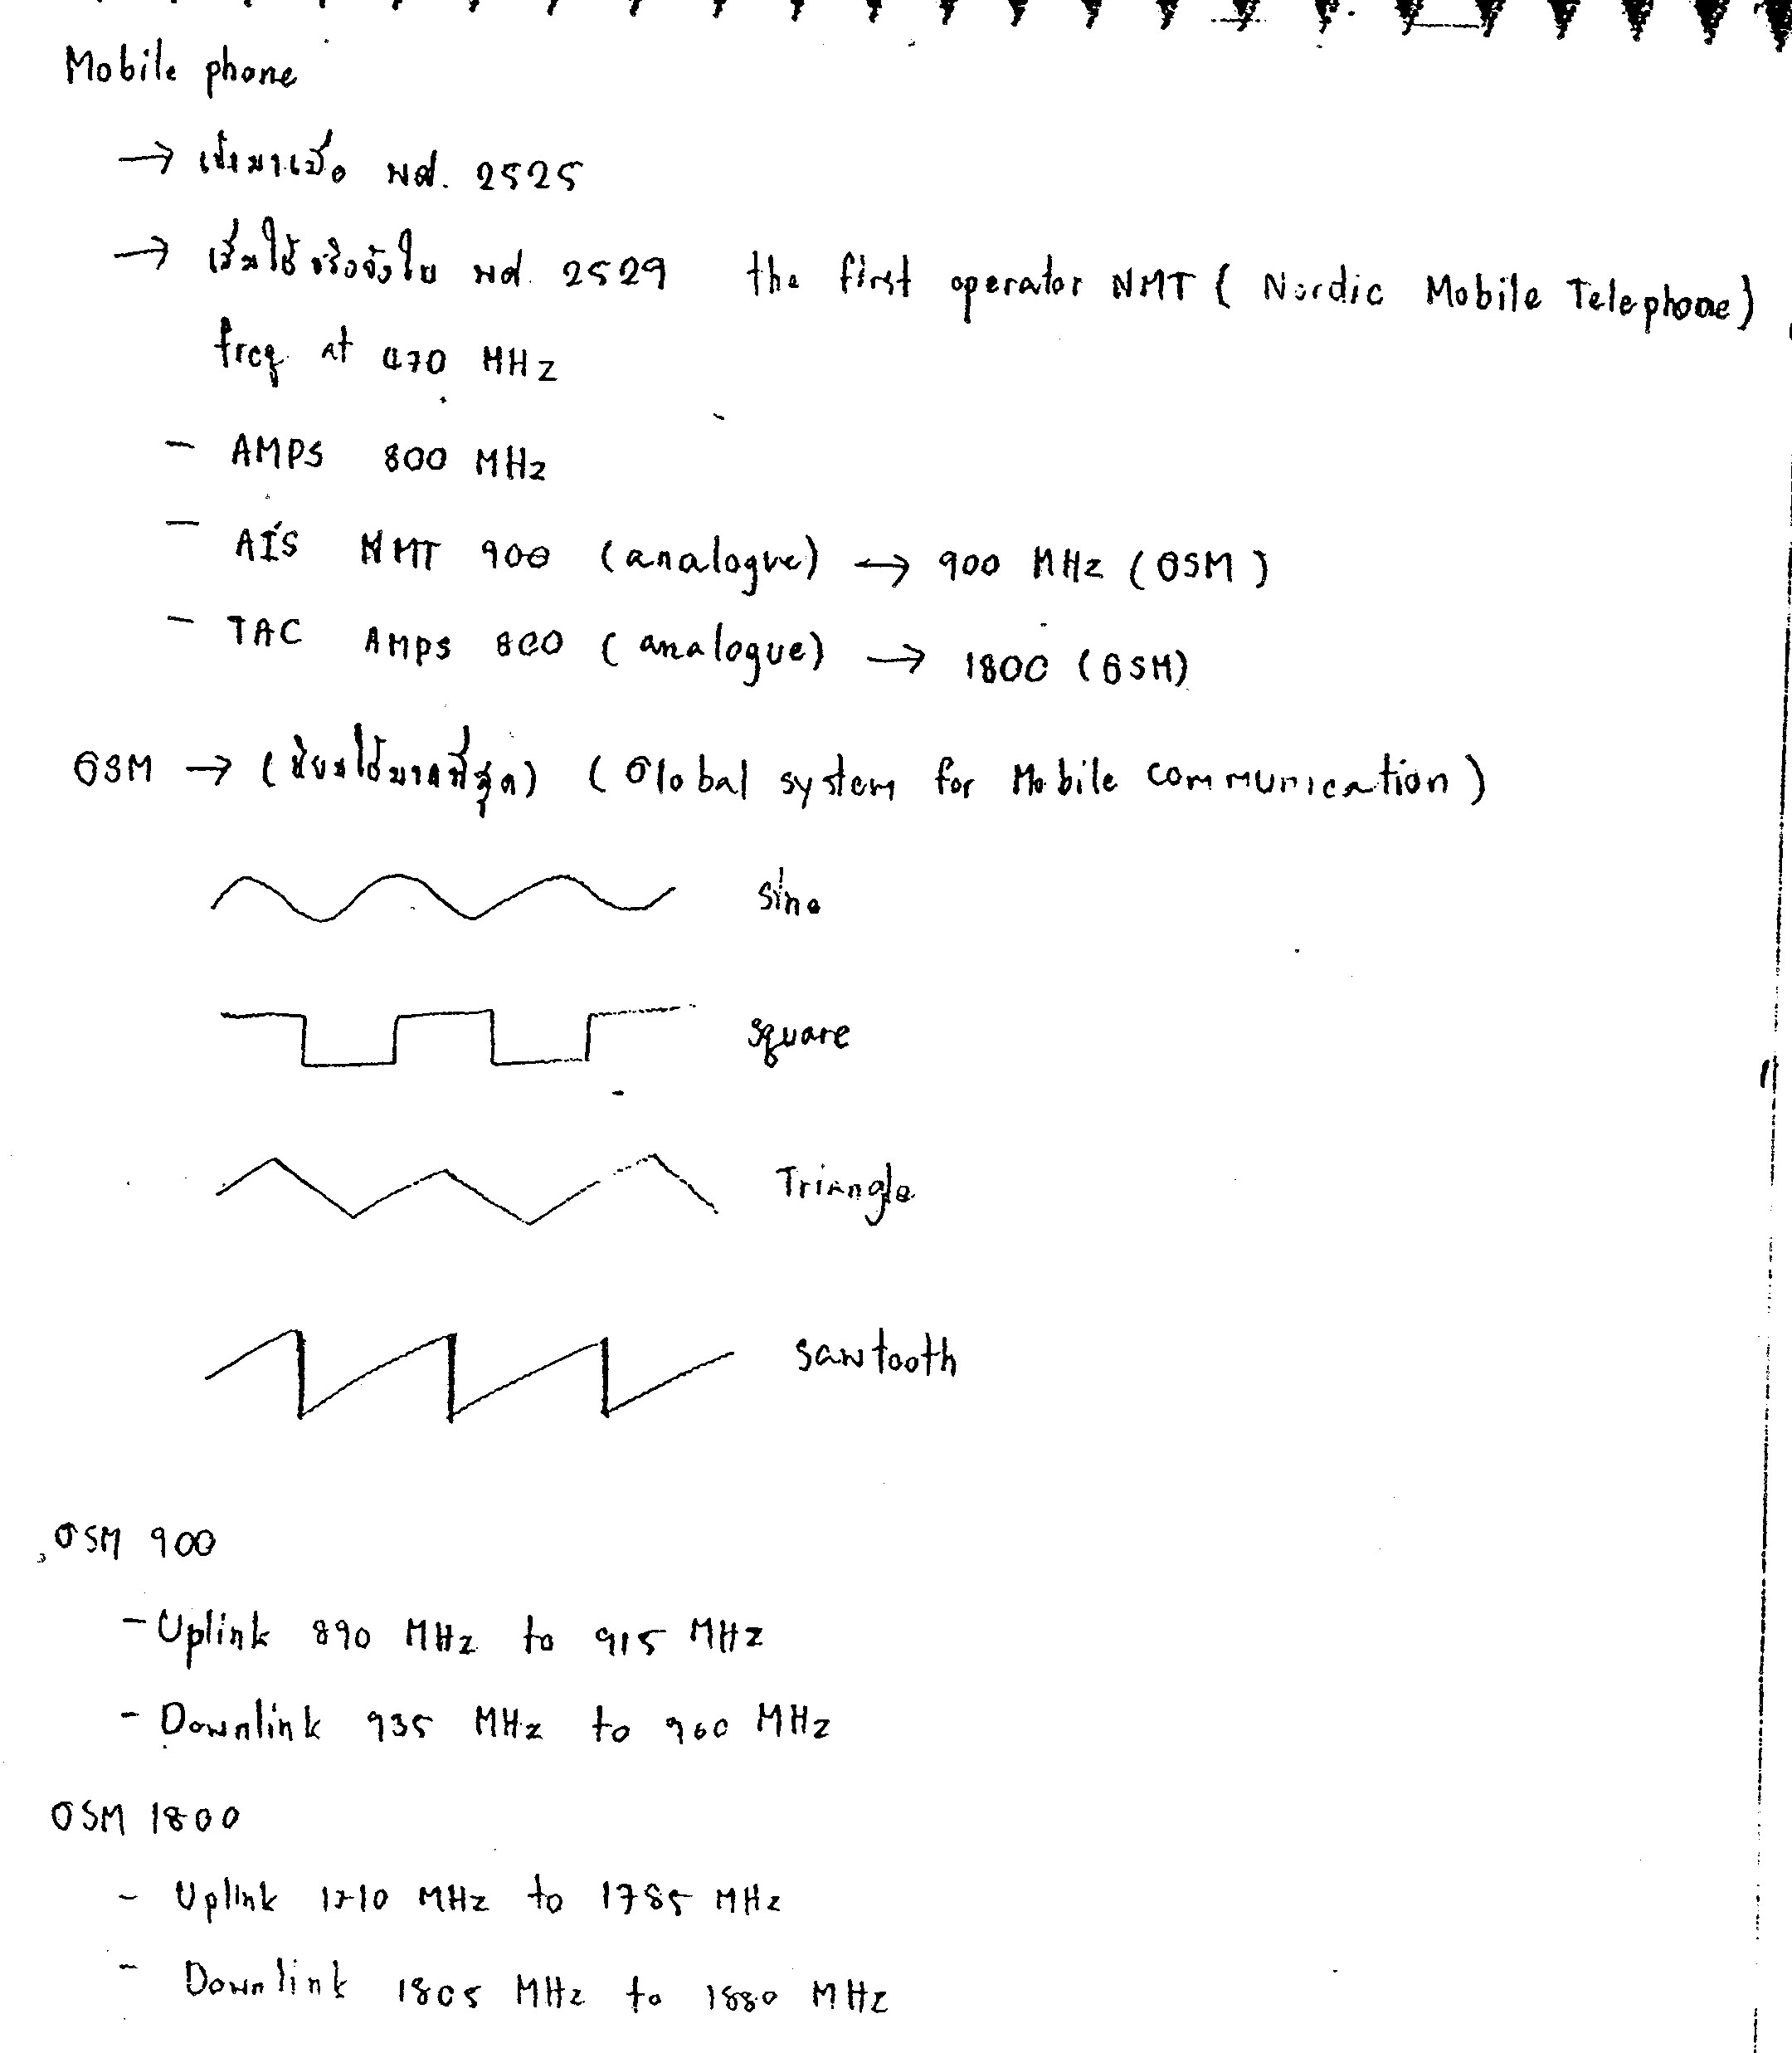 Mobile phone
→ เข้ามาเมื่อ พศ. 2525
→ เริ่มใช้จริงจังใน พศ. 2529 the first operator NMT ( Nordic Mobile Telephone)
freq at 470 MHz
- AMPS 800 MHz
- AIS NMT 900 (analogue) → 900 MHz (GSM)
- TAC AMPS 800 (analogue) → 1800 (GSM)
GSM → (นิยมใช้มากที่สุด) (Global system for Mobile communication)
sine
square
Triangle
sawtooth
GSM 900
- Uplink 890 MHz to 915 MHz
- Downlink 935 MHz to 960 MHz
GSM 1800
- Uplink 1710 MHz to 1785 MHz
- Downlink 1805 MHz to 1880 MHz